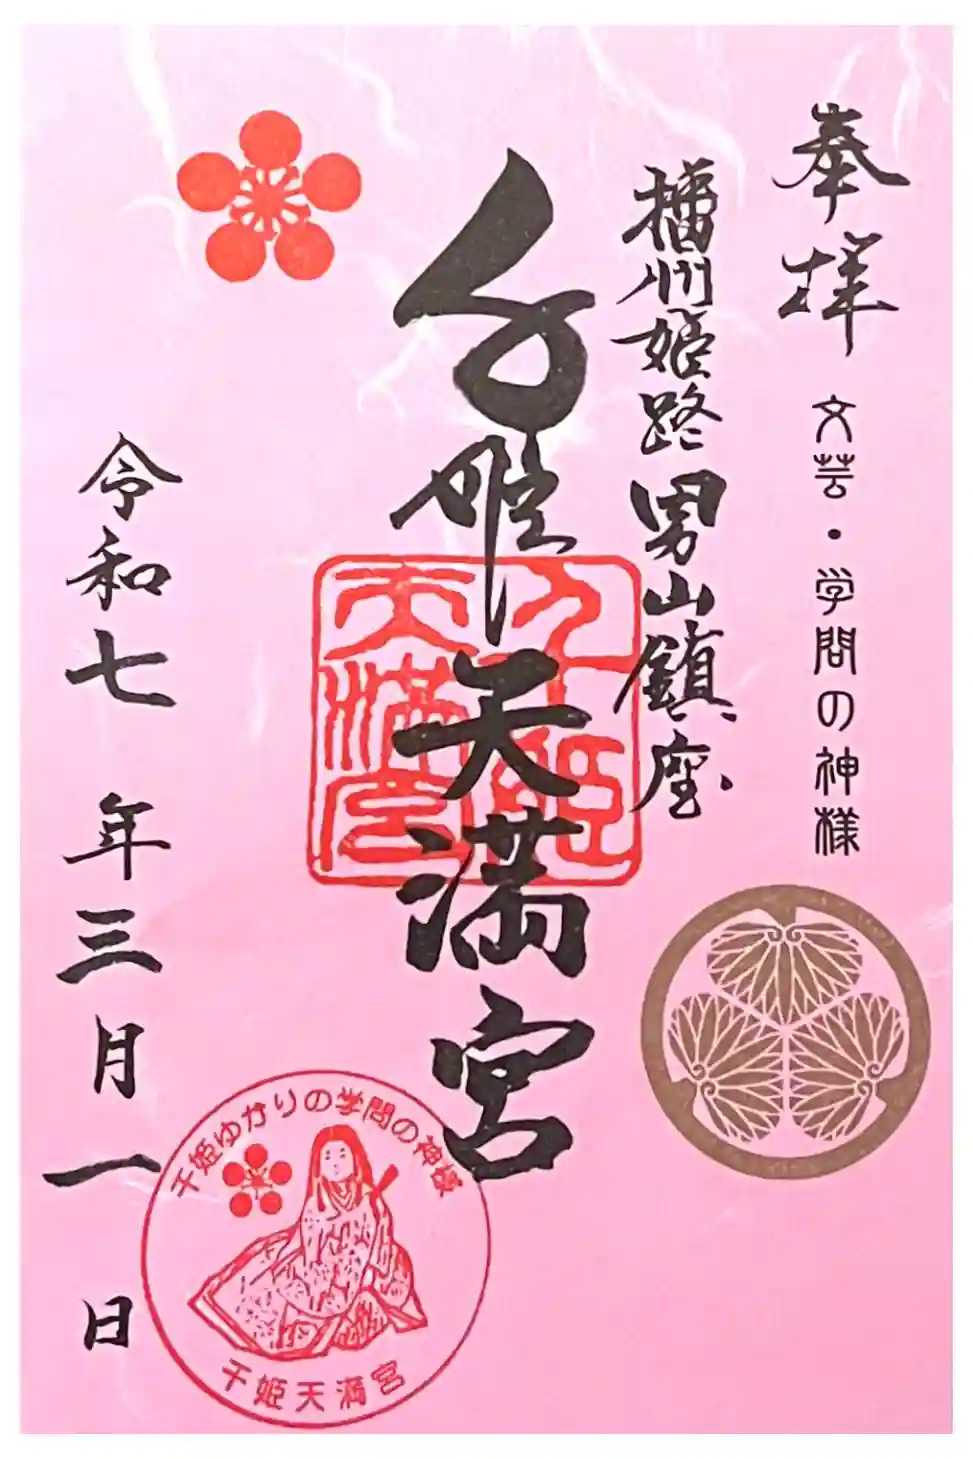 奉拝
文芸・学問の神様
播州姫路 男山鎮座
千姫天満宮
千姫
天満宮
令和七年三月一日
千姫ゆかりの学問の神様
千姫天満宮